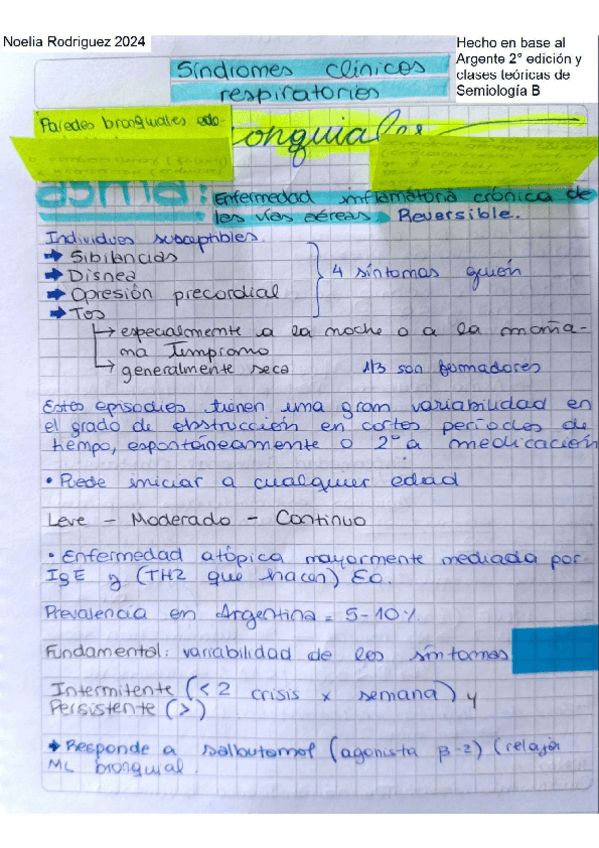 Noelia Rodriguez 2024
Hecho en base al
Argente 2° edición y
clases teóricas de
Semiología B
Síndromes clínicos
respiratorios
Paredes bronquiales
onquiales
asma:
Enfermedad inflamatoria crónica de
las vías aéreas. Reversible.
Individuos susceptibles.
→ Sibilancias
→ Disnea
→ Opresión precordial
→ Tos
4 síntomas guión
→ especialmente a la noche o a la maña-
na temprano
→ generalmente seca
1/3 son fumadores
Estos episodios tienen una gran variabilidad en
el grado de obstrucción en cortos períodos de
tiempo, espontáneamente o 2° a medicación
• Puede iniciar a cualquier edad
Leve - Moderado - Continuo
• Enfermedad atópica mayormente mediada por
IgE y (TH2 que hacen) Eo.
Prevalencia en Argentina = 5-10%
Fundamental: variabilidad de los síntomas
Intermitente (< 2 crisis x semana) y
Persistente (>)
→ Responde a salbutamol (agonista β-2) (relajan
ML bronquial.